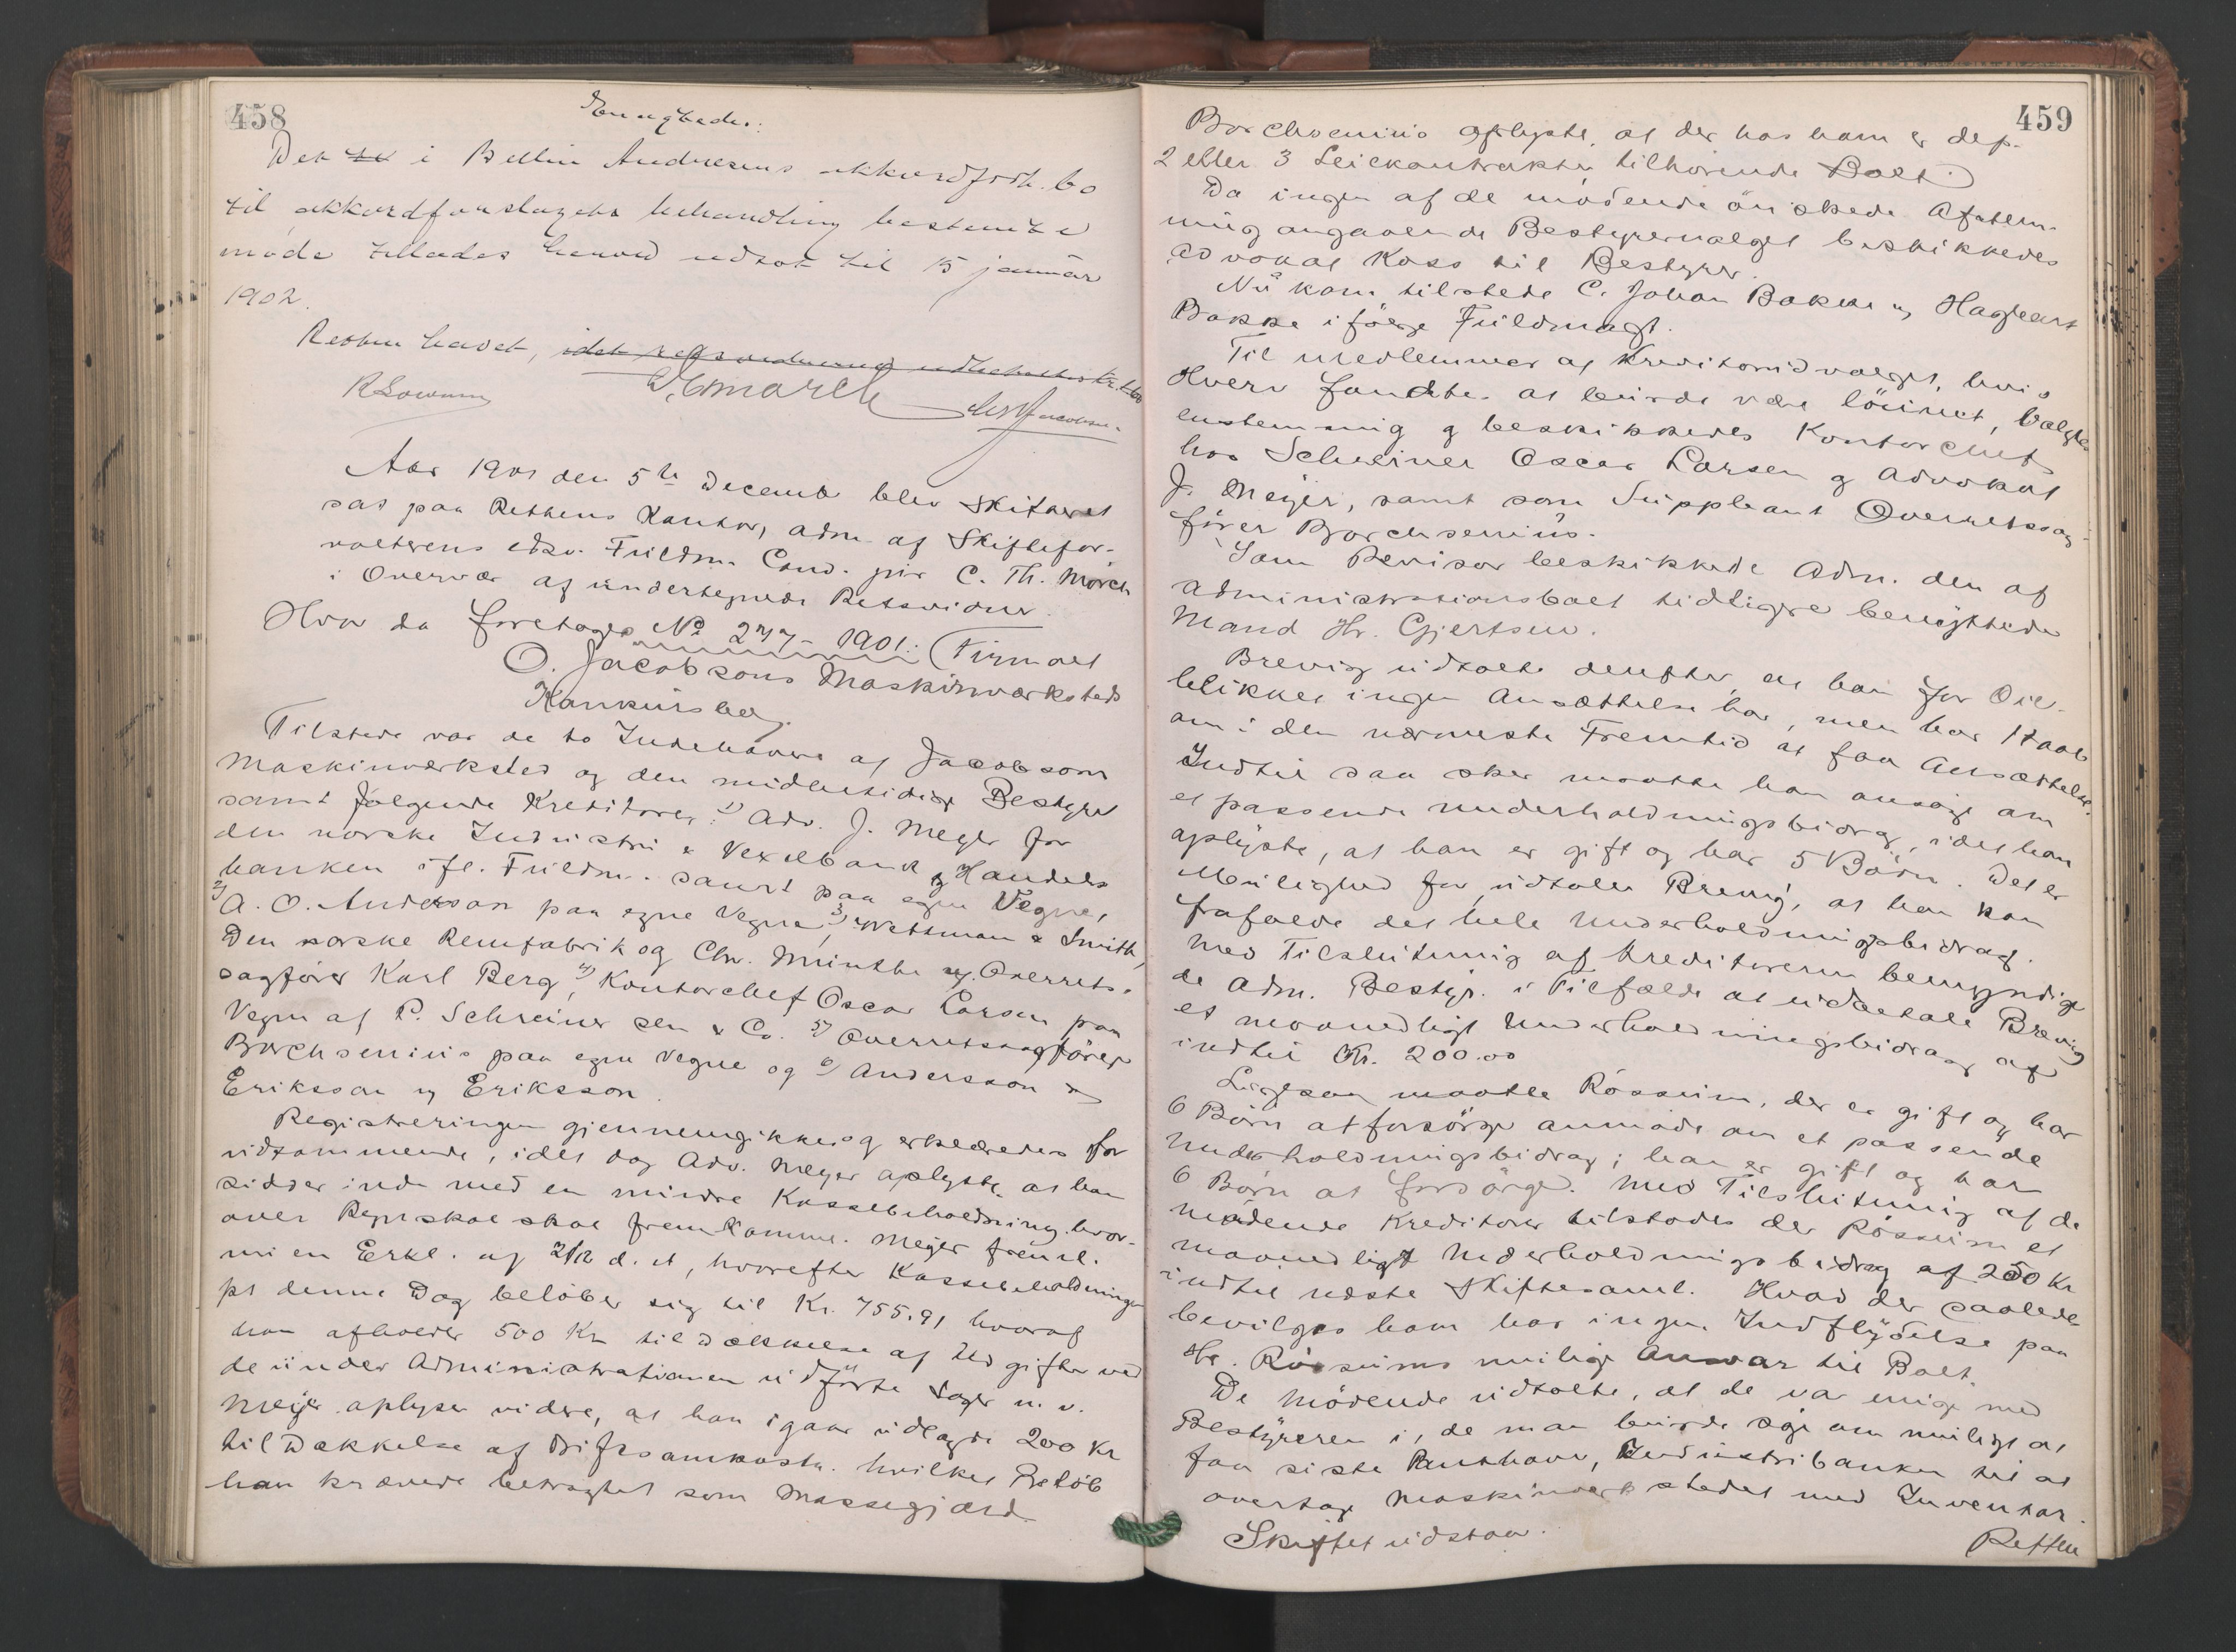 458
Det i Andresens akkordforh. bo
til akkordforslagets behandling bestemte
møde tillades herved udsat til 15 januar
1902.
Retten hævet, idet
Aar 1901 den 5te Decemb blev Skifteret
sat paa Rettens Kontor, adm. af Skiftefor-
valterens edsv. Fuldm. Cand. jur C. Th. Mörch
i Overvær af undertegnede Retsvidner.
Hvor da foretoges No 277 - 1901: Firmaet
O. Jacobsons Maskinværksteds
Konkursbo.
Tilstede var de to Indehavere af Jacobsons
Maskinverksted og den midlertidige Bestyrer
samt følgende Kreditorer: 1) Adv. J. Meyer for
den norske Industri & Vexelbank og Handels
banken ifl. Fuldm. samt paa egne Vegne,
2) A. O. Anderson paa egne Vegne, 3) Wettman & Smith,
Den norske Remfabrik og Chr. Minthe ved Overrets-
sagfører Karl Berg, 4) Kontorchef Oscar Larsen paa
Vegne af P. Schreiner sen & Co. 5) Overretssagfører
Borchsenius paa egne Vegne og 6) Andersson
Eriksson & Eriksson.
Registreringen gjennemgikkes og erklæredes for
vidkommende, idet dog Adv. Meyer oplyste at han
sidder inde med en mindre Kassebeholdning, hvor-
over Regnskab skal fremkomme. Meyer freml.
en Erkl. af 2/12 d. A., hvorefter Kassebeholdningen
pr denne Dag beløber sig til Kr. 755.91 hvoraf
han afholder 500 Kr til Dækkelse af Udgifter ved
de under Administrationen udførte Sager m. v.
Meyer oplyser videre, at han igaar udlagde 200 Kr
til Dækkelse af Driftsomkostn. hvilket Beløb
han krævede betragtet som Massegjæld
459
Borchsenius oplyste, at der hos ham er dep.
2 eller 3 Leiekontrakter tilhörende Boet
Da ingen af de mødende önskede Afstem-
ning angaaende Bestyrervalget beskikkedes
Advokat Koss til Bestyrer.
Nu kom tilstede C. Johan Bakke og Hagbart
Bakke ifölge Fuldmagt.
Til medlemmer af Kreditorudvalget, hvis
Hverv fandtes at burde være lönnet, valgtes
enstemmig og beskikkedes Kontorchef
hos Schreiner Oscar Larsen og Advokat
J. Meyer, samt som Suppleant Overretssag-
förer Borchsenius.
Som Revisor beskikkede Adm. den af
Administrationsboet tidligere benyttede
Mand Hr. Gjertsen.
Brevig udtalte derefter, at han for Øie-
blikket ingen Ansættelse har, men har Haab
om i den nærmeste Fremtid at faa Ansættelse.
Indtil saa sker maatte han ansöge om
et passende underholdningsbidrag, idet han
oplyste, at han er gift og har 5 Børn. Det er
Mulighed for, udtaler Brevig, at han kan
frafalde det hele Underholdningsbidrag.
Med Tilslutning af Kreditorerne bemyndige
de Adm. Bestyr. i Tilfælde at udbetale Brevig
et maanedligt Underholdningsbidrag af
indtil Kr. 200.00
Ligesaa maatte Rössum, der er gift og har
6 Børn at forsörge anmode om et passende
Underholdningsbidrag; han er gift og har
6 Børn at forsörge. Med Tilslutning af de
mødende Kreditorer tilstodes der Rössum et
maanedligt Underholdningsbidrag af 250 Kr
indtil næste Skiftesaml. Hvad der saalede
bevilges ham har ingen Indflydelse paa
Hr. Rössums mulige Ansvar til Boet.
De Mödende udtalte, at de var enige med
Bestyreren i, de man burde söge om muligt at
faa siste Panthaver, Industribanken til at
overtage Maskinverkstedet med Inventar.
Skiftet udstaar.
Retten